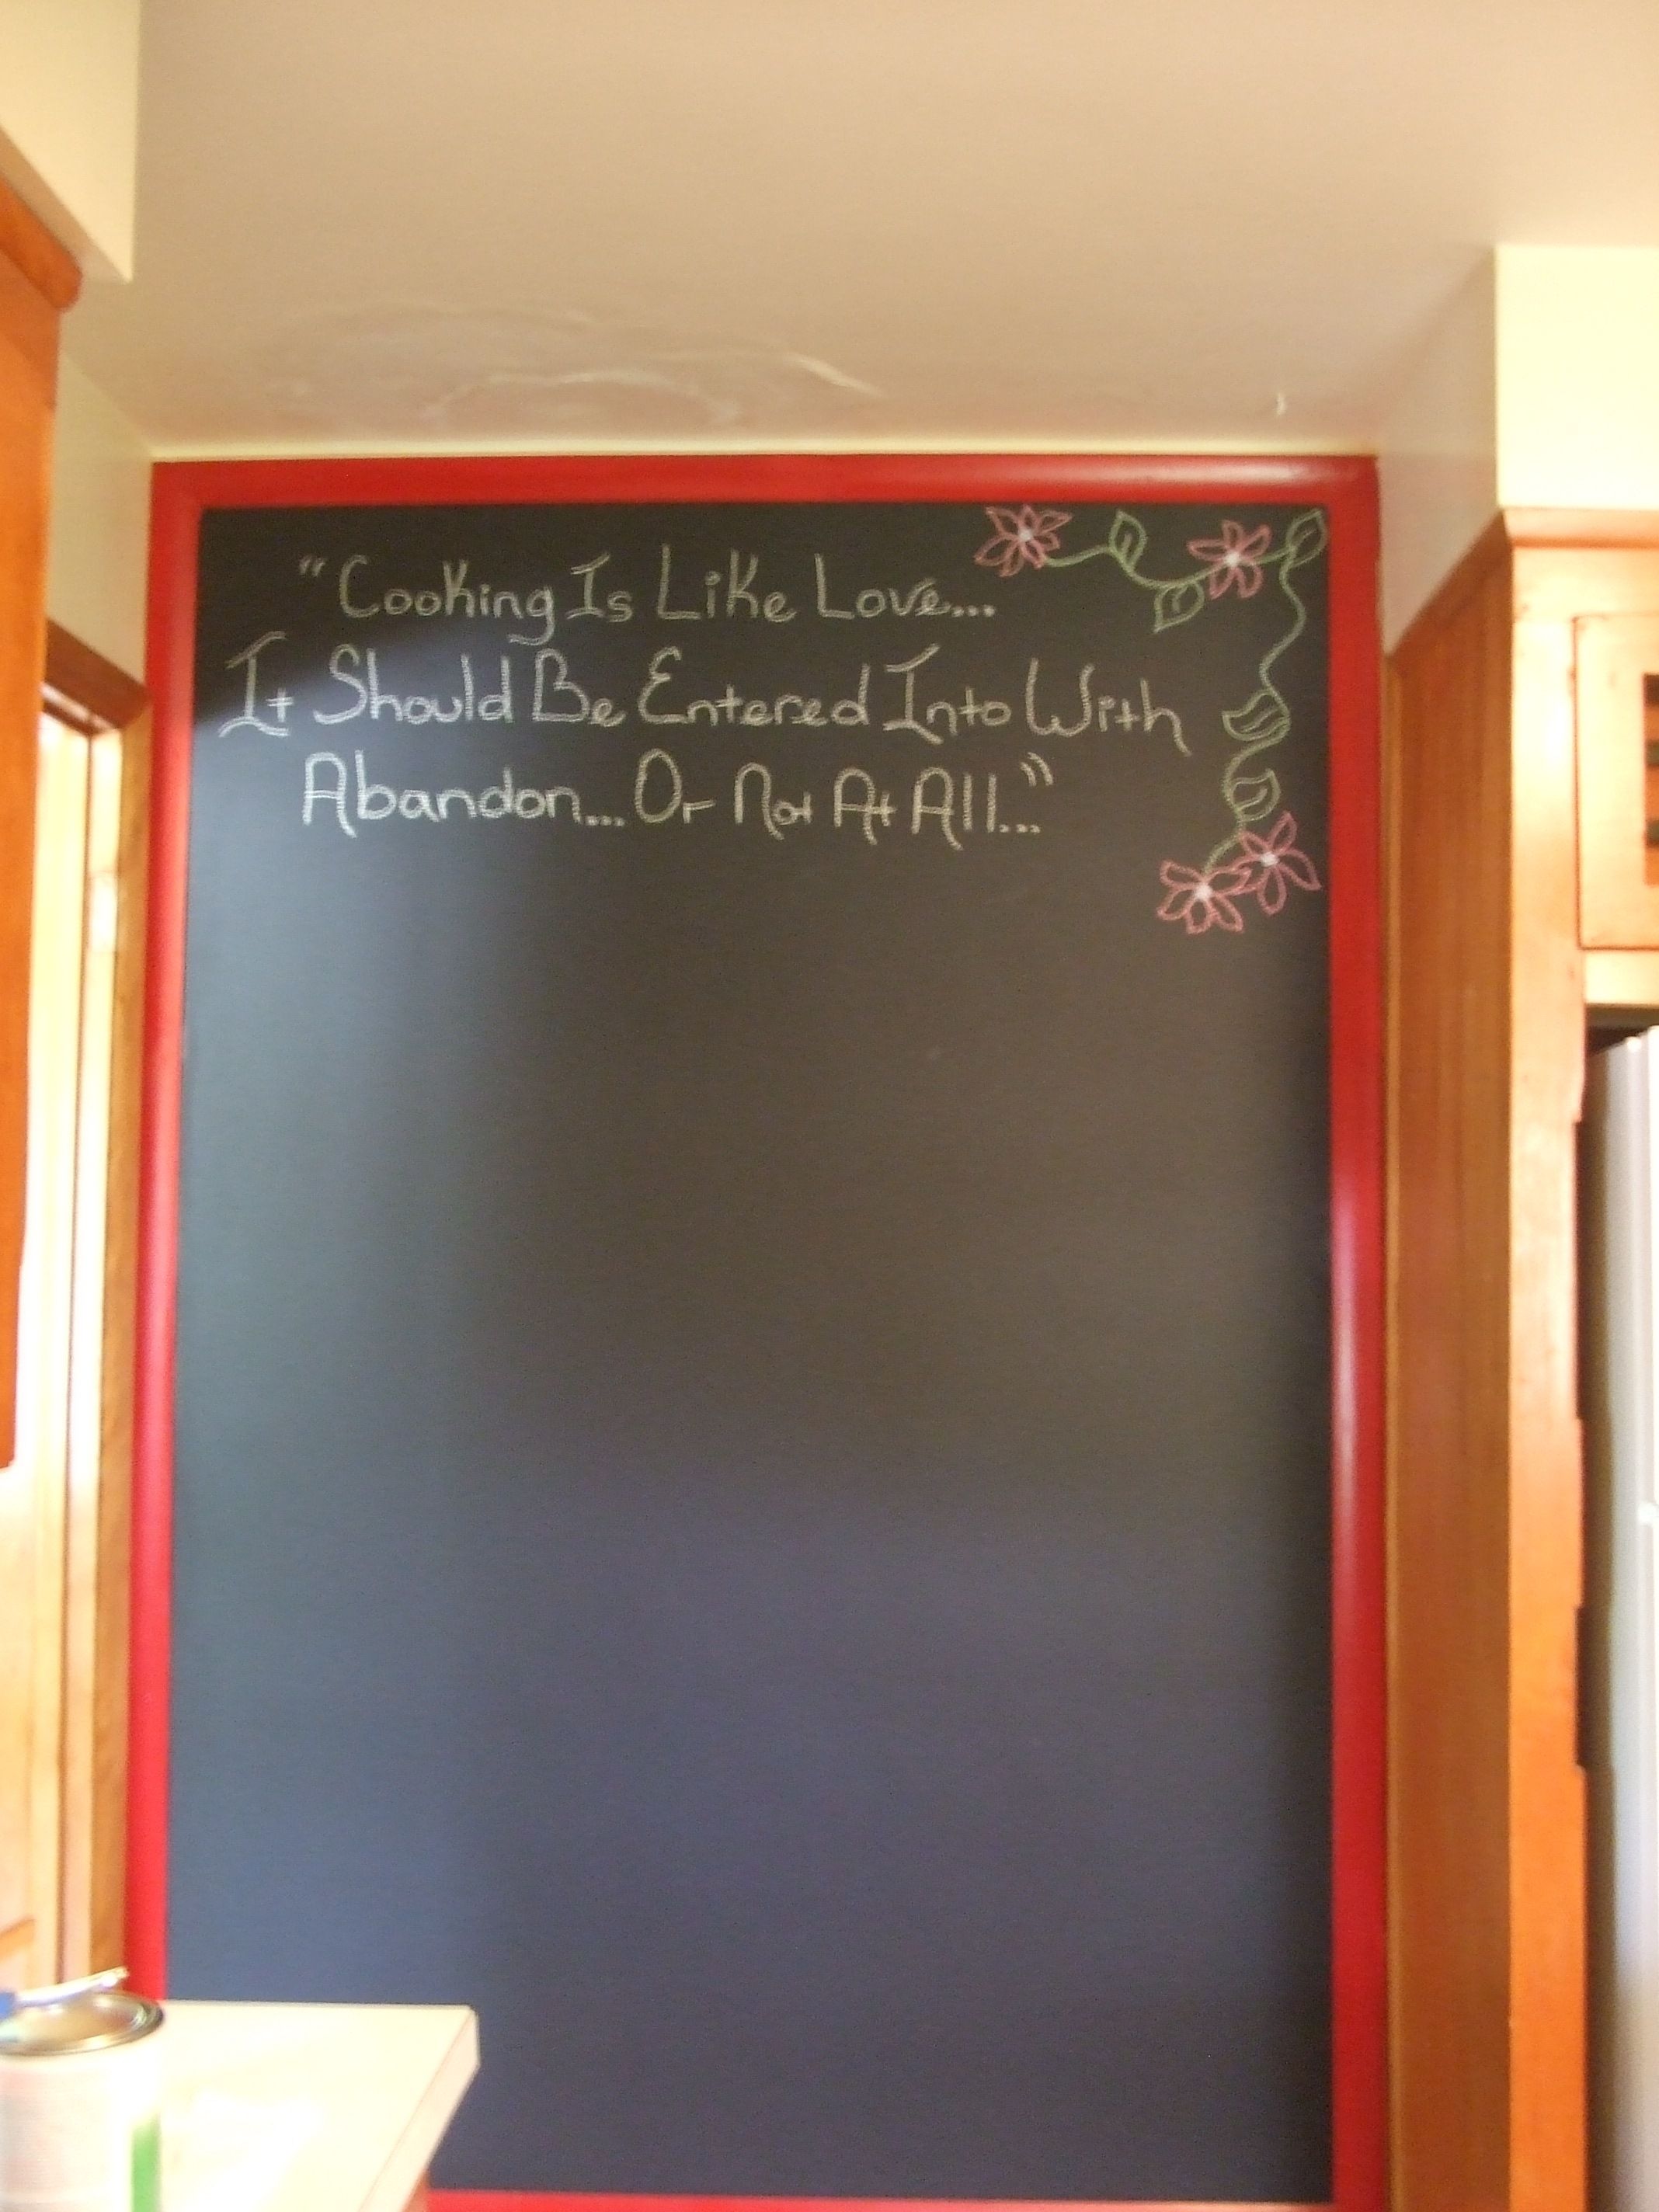 "Cooking Is Like Love...
It Should Be Entered Into With
Abandon... Or Not At All..."